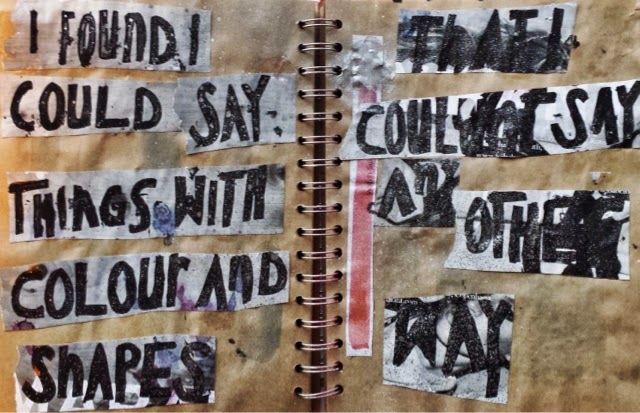 I FOUND I
COULD SAY
THINGS WITH
COLOUR AND
SHAPES
THAT I
COULD NOT SAY
ANY
OTHER
WAY